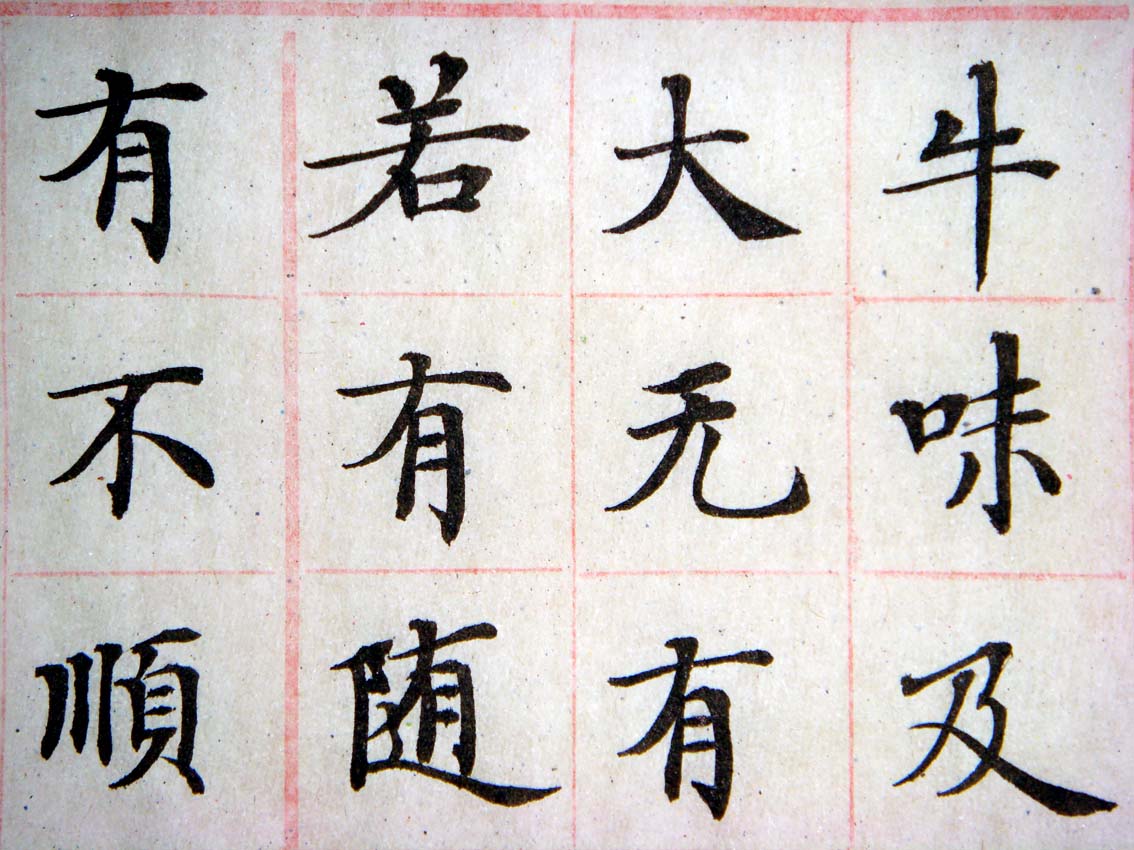 牛味及
大无有
若有随
有不順